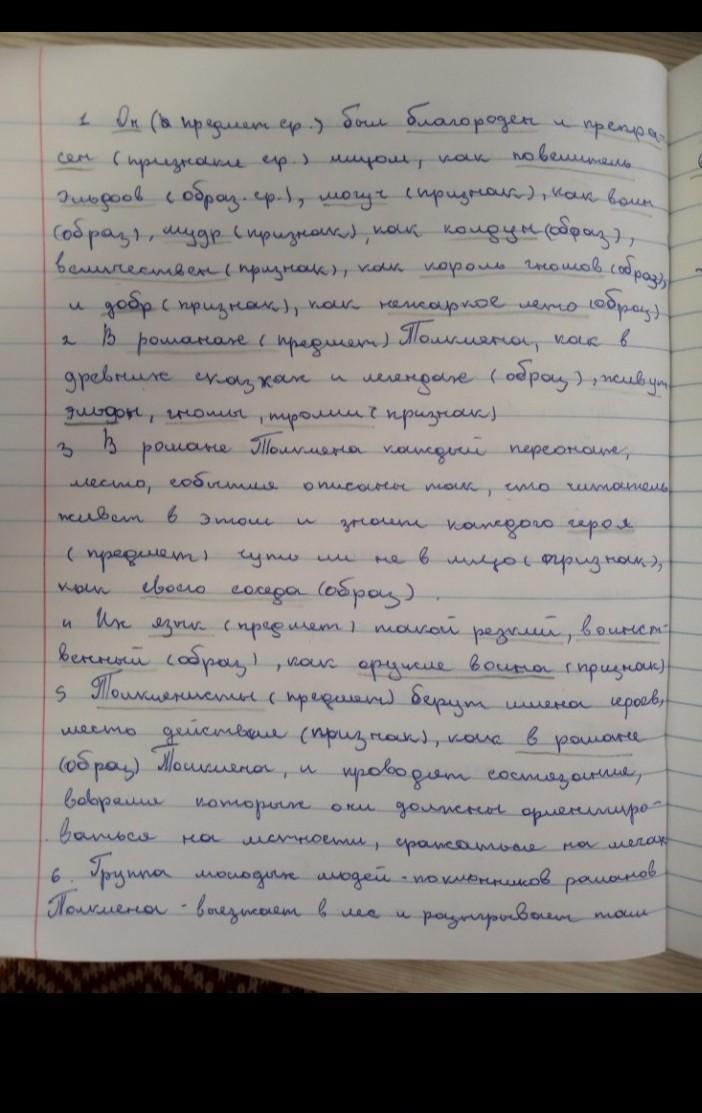 1 Он (в предмет ср.) был благороден и прекра-
сен (признаки ср.) лицом, как повелитель
эльфов (образ. ср.), могуч (признак), как воин
(образ), мудр (признак), как колдун (образ),
величествен (признак), как король гномов (образ),
и добр (признак), как нежаркое лето (образ)
2 В романах (предмет) Толкиена, как в
древних сказках и легендах (образ), живут
эльфы, гномы, тролли (признак)
3 В романе Толкиена каждый персонаж,
место, события описаны так, что читатель
живет в этом и знает каждого героя
(предмет) чуть ли не в лицо (признак),
как своего соседа (образ).
4 Их язык (предмет) такой резкий, воинст-
венный (образ), как оружие воина (признак)
5 Толкиенисты (предмет) берут имена героев,
место действия (признак), как в романе
(образ) Толкиена, и проводят состязание,
вовремя которых они должны ориентиро-
ваться на мстности, сражаться на мечах
6. Группа молодых людей - поклонников романов
Толкиена - выезжает в лес и разыгрывает там